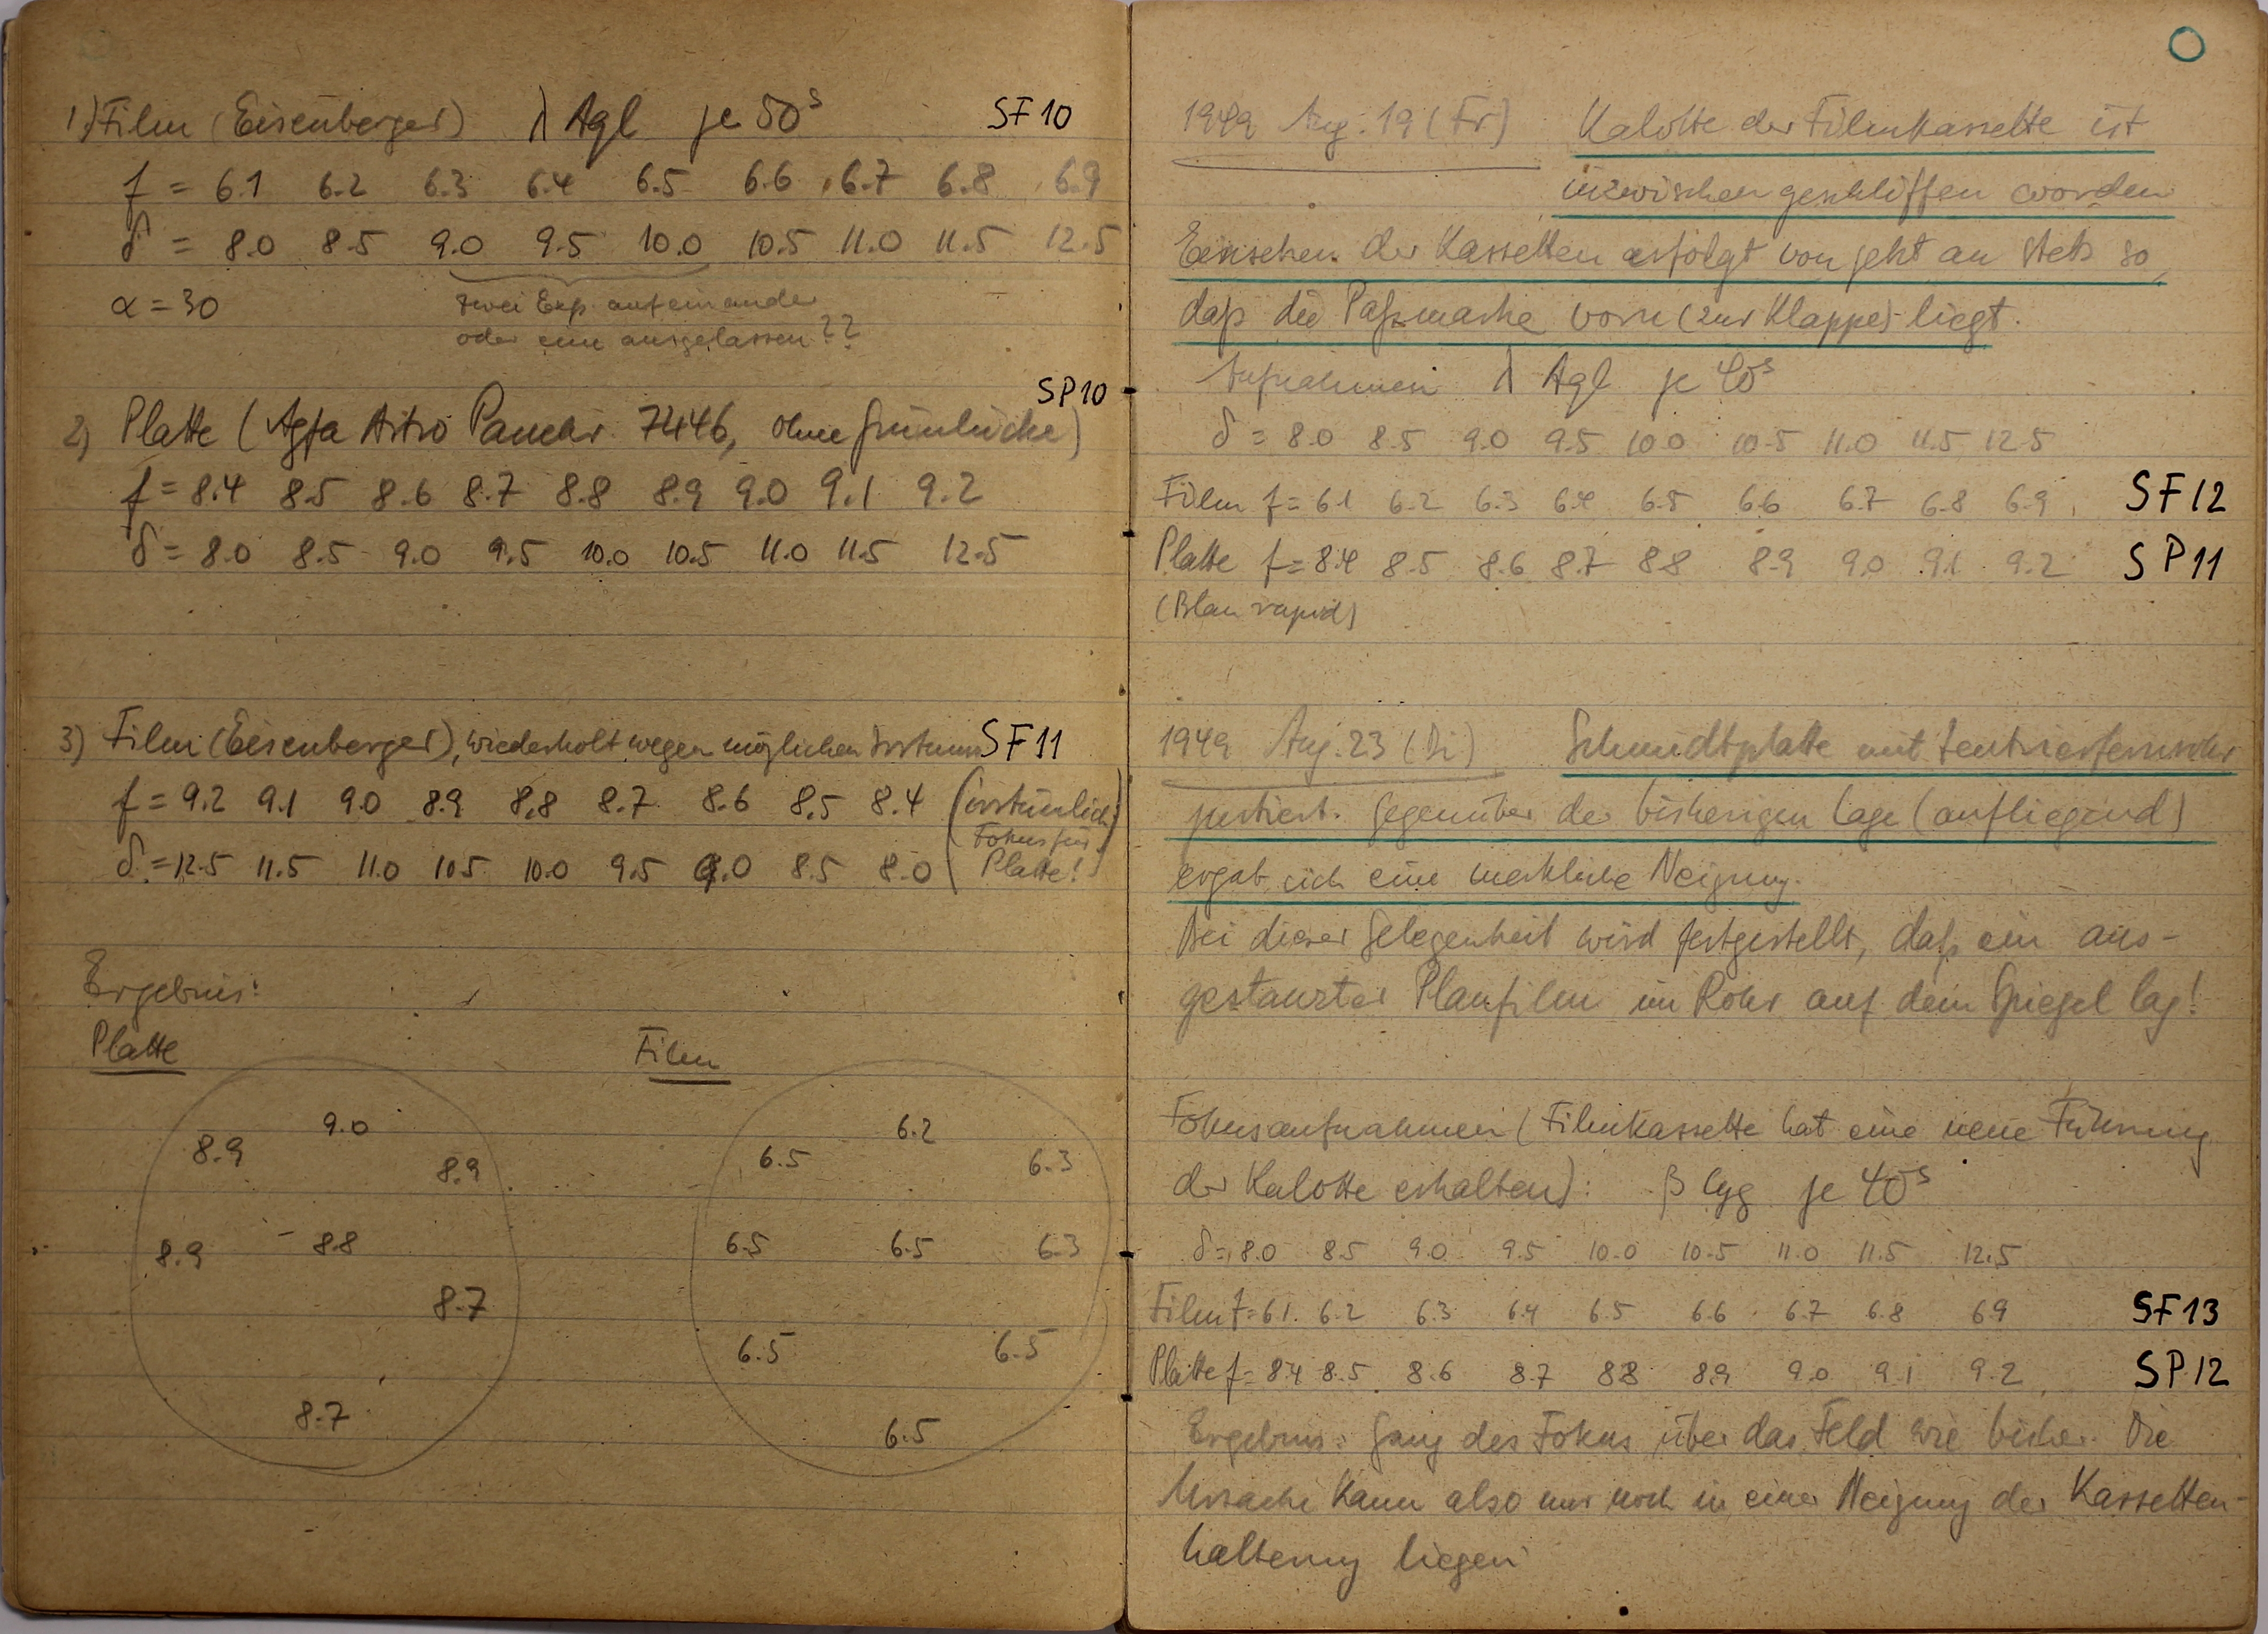 1) Film (Eisenberger) λ Aql je 50s SF10
f = 6.1 6.2 6.3 6.4 6.5 6.6 6.7 6.8 6.9
δ = 8.0 8.5 9.0 9.5 10.0 10.5 11.0 11.5 12.5
α = 30 zwei Exp. aufeinander
oder eine ausgelassen??
SP10
2) Platte (Agfa Astro Panchr. 7446, ohne Grünlücke)
f = 8.4 8.5 8.6 8.7 8.8 8.9 9.0 9.1 9.2
δ = 8.0 8.5 9.0 9.5 10.0 10.5 11.0 11.5 12.5
3) Film (Eisenberger), wiederholt wegen möglichen Irrtums SF11
f = 9.2 9.1 9.0 8.9 8.8 8.7 8.6 8.5 8.4 (irrtümlich
Fokus für
δ = 12.5 11.5 11.0 10.5 10.0 9.5 9.0 8.5 8.0 Platte!)
Ergebnis:
Platte Film
9.0
8.9
8.9
8.9 8.8
8.7
8.7
6.2
6.5 6.3
6.5 6.5 6.3
6.5 6.5
6.5
1949 Aug. 19 (Fr) Kalotte der Filmkassette ist
inzwischen geschliffen worden
Einsetzen der Kassetten erfolgt von jetzt an stets so,
daß die Paßmarke vorn (zur Klappe) liegt.
Aufnahmen λ Aql je 40s
δ = 8.0 8.5 9.0 9.5 10.0 10.5 11.0 11.5 12.5
Film f = 6.1 6.2 6.3 6.4 6.5 6.6 6.7 6.8 6.9 SF12
Platte f = 8.4 8.5 8.6 8.7 8.8 8.9 9.0 9.1 9.2 SP11
(Blau rapid)
1949 Aug. 23 (Di) Schmidtplatte mit Zentrierfernrohr
justiert. Gegenüber der bisherigen Lage (aufliegend)
ergab sich eine merkliche Neigung.
Bei dieser Gelegenheit wird festgestellt, daß ein aus-
gestanzter Planfilm im Rohr auf dem Spiegel lag!
Fokusaufnahmen (Filmkassette hat eine neue Führung
der Kalotte erhalten): β Cyg je 40s
δ = 8.0 8.5 9.0 9.5 10.0 10.5 11.0 11.5 12.5
Film f = 6.1 6.2 6.3 6.4 6.5 6.6 6.7 6.8 6.9 SF13
Platte f = 8.4 8.5 8.6 8.7 8.8 8.9 9.0 9.1 9.2 SP12
Ergebnis: Gang des Fokus über das Feld wie bisher. Die
Ursache kann also nur noch in einer Neigung der Kassetten-
halterung liegen